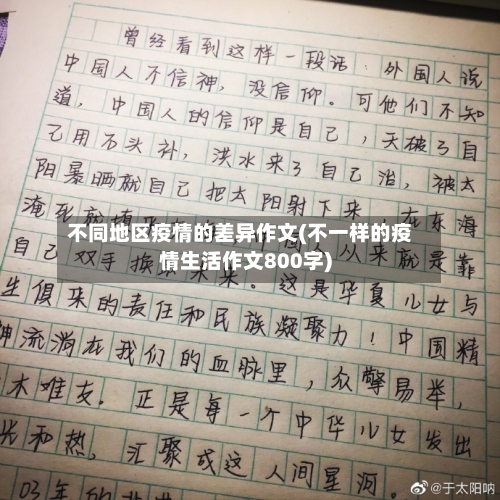 曾经看到这样一段话：外国人说
中国人不信神，没信仰。可他们不知
道，中国人的信仰是自己，天破了自
己用石头补，洪水来了自己治，被太
阳暴晒就自己把太阳射下来，在东海
淹死就填
不同地区疫情的差异作文(不一样的疫
情生活作文800字)
自己双手换
人从来就是靠
来。这是华夏儿女与
生俱来的责任和民族凝聚力！中国精
神流淌在我们的血脉里，众擎易举，
木难支。正是每一个中华儿女发出
光和热，汇聚成这人间星河。
03年的
@于太阳呐